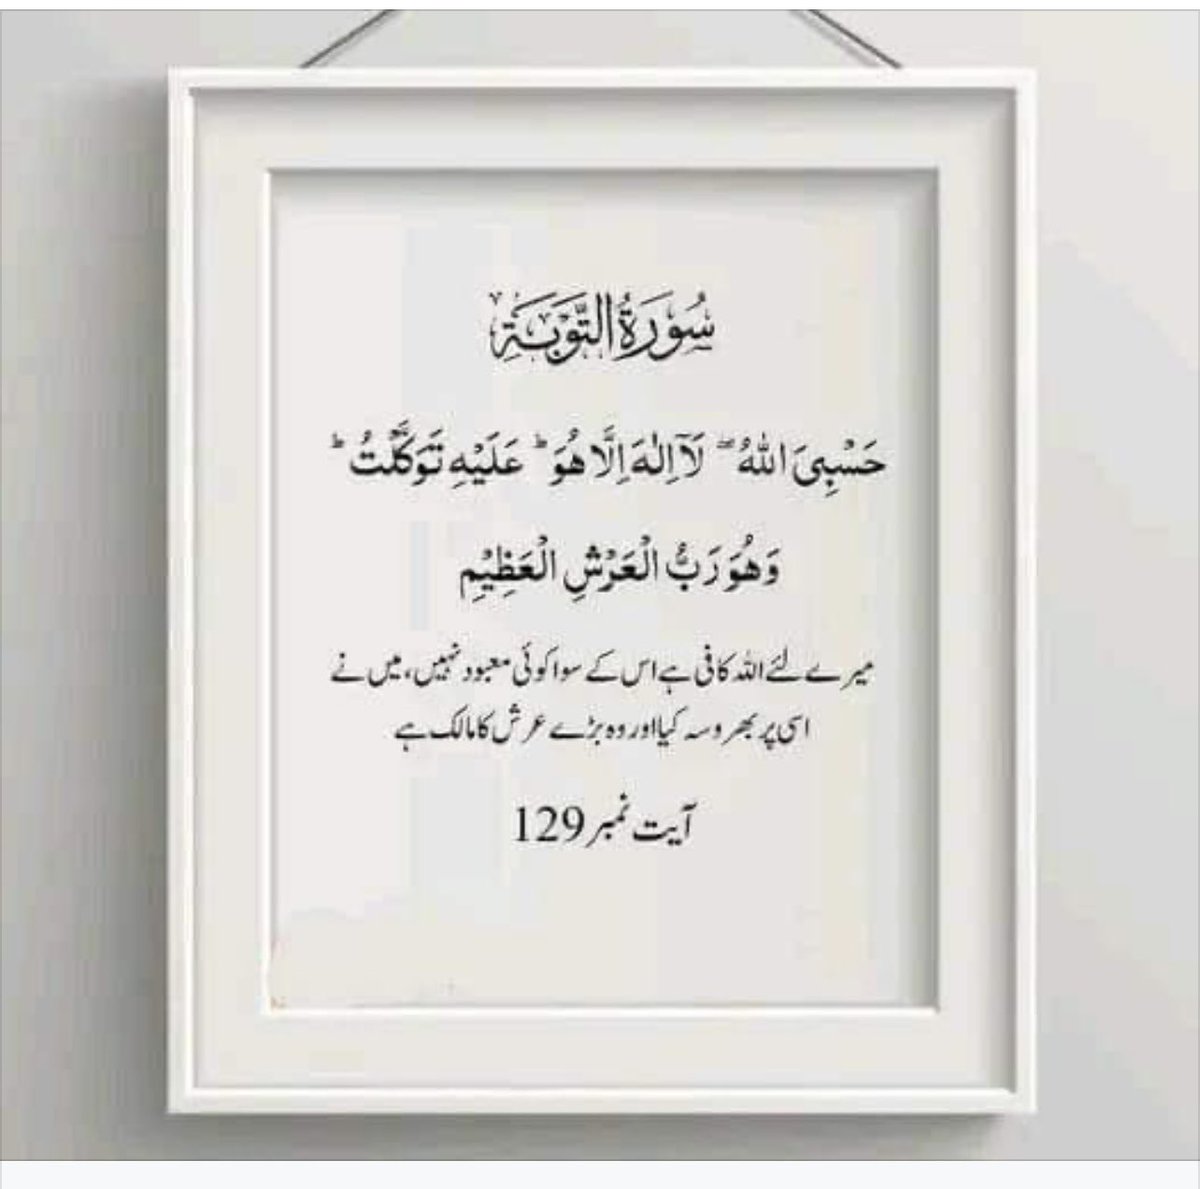 سُورَةُ التَّوْبَةِ
حَسْبِیَ اللّٰهُ ۖ لَاۤ اِلٰهَ اِلَّا هُوَ ؕ عَلَیْهِ تَوَكَّلْتُ ؕ
وَهُوَ رَبُّ الْعَرْشِ الْعَظِیْمِ
میرے لئے اللہ کافی ہے اس کے سوا کوئی معبود نہیں، میں نے
اسی پر بھروسہ کیا اور وہ بڑے عرش کا مالک ہے
آیت نمبر 129